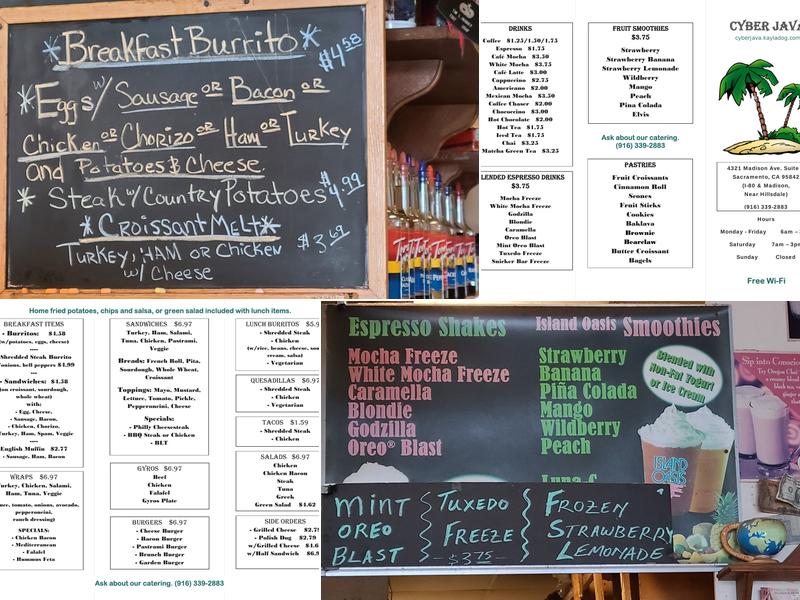 *Breakfast Burrito*
$4.58
*Eggs w/ Sausage OR Bacon OR
Chicken OR Chorizo OR Ham OR Turkey
and Potatoes & Cheese.
* Steak w/ Country Potatoes $4.99
*Croissant Melt*
Turkey, HAM or Chicken $3.69
w/ Cheese
DRINKS
Coffee $1.25/1.50/1.75
Espresso $1.75
Café Mocha $3.50
White Mocha $3.75
Café Latte $3.00
Cappucino $2.75
Americano $2.00
Mexican Mocha $3.50
Coffee Chaser $2.00
Chococino $3.00
Hot Chocolate $2.00
Hot Tea $1.75
Iced Tea $1.75
Chai $3.25
Matcha Green Tea $3.25
LENDED ESPRESSO DRINKS
$3.75
Mocha Freeze
White Mocha Freeze
Godzilla
Blondie
Caramella
Oreo Blast
Mint Oreo Blast
Tuxedo Freeze
Snicker Bar Freeze
FRUIT SMOOTHIES
$3.75
Strawberry
Strawberry Banana
Strawberry Lemonade
Wildberry
Mango
Peach
Pina Colada
Elvis
Ask about our catering.
(916) 339-2883
PASTRIES
Fruit Croissants
Cinnamon Roll
Scones
Fruit Sticks
Cookies
Baklava
Brownie
Bearclaw
Butter Croissant
Bagels
CYBER JAVA
cyberjava.kayladog.com
4321 Madison Ave, Suite
Sacramento, CA 95842
(I-80 & Madison,
Near Hillsdale)
(916) 339-2883
Hours
Monday - Friday 6am –
Saturday 7am – 3pm
Sunday Closed
Free Wi-Fi
Home fried potatoes, chips and salsa, or green salad included with lunch items.
BREAKFAST ITEMS
- Burritos: $4.58
(w/potatoes, eggs, cheese)
----
Shredded Steak Burrito
onions, bell peppers $4.99
----
- Sandwiches: $4.58
(on croissant, sourdough,
whole wheat)
with:
- Egg, Cheese,
- Sausage, Bacon,
- Chicken, Chorizo,
Turkey, Ham, Spam, Veggie
----
English Muffin $2.77
- Sausage, Ham, Bacon
WRAPS $6.97
Turkey, Chicken, Salami,
Ham, Tuna, Veggie
tomato, onions, avocado,
pepperoncini,
ranch dressing)
SPECIALS:
- Chicken Bacon
- Mediterranean
- Falafel
- Hummus Feta
SANDWICHES $6.97
Turkey, Ham, Salami,
Tuna, Chicken, Pastrami,
Veggie
Breads: French Roll, Pita,
Sourdough, Whole Wheat,
Croissant
Toppings: Mayo, Mustard,
Lettuce, Tomato, Pickle,
Pepperoncini, Cheese
Specials:
- Philly Cheesesteak
- BBQ Steak or Chicken
- BLT
GYROS $6.97
Beef
Chicken
Falafel
Gyros Plate
BURGERS $6.97
- Cheese Burger
- Bacon Burger
- Pastrami Burger
- Brunch Burger
- Garden Burger
LUNCH BURRITOS $5.9
- Shredded Steak
- Chicken
(w/rice, beans, cheese, sour
cream, salsa)
- Vegetarian
QUESADILLAS $6.97
- Shredded Steak
- Chicken
- Vegetarian
TACOS $1.59
- Shredded Steak
- Chicken
SALADS $6.97
Chicken
Chicken Bacon
Steak
Tuna
Greek
Green Salad $4.62
SIDE ORDERS
- Grilled Cheese $2.79
- Polish Dog $2.79
w/Grilled Cheese $1.6
w/Half Sandwich $6.9
Ask about our catering. (916) 339-2883
Espresso Shakes
Mocha Freeze
White Mocha Freeze
Caramella
Blondie
Godzilla
Oreo® Blast
Island Oasis Smoothies
Strawberry
Banana
Piña Colada
Mango
Wildberry
Peach
Blended with
Non-Fat Yogurt
or Ice Cream
ISLAND
OASIS
Sip into Conscious
Try Oregon Chai
MINT
OREO
BLAST
TUXEDO
FREEZE
$3.75
FROZEN
STRAWBERRY
LEMONADE